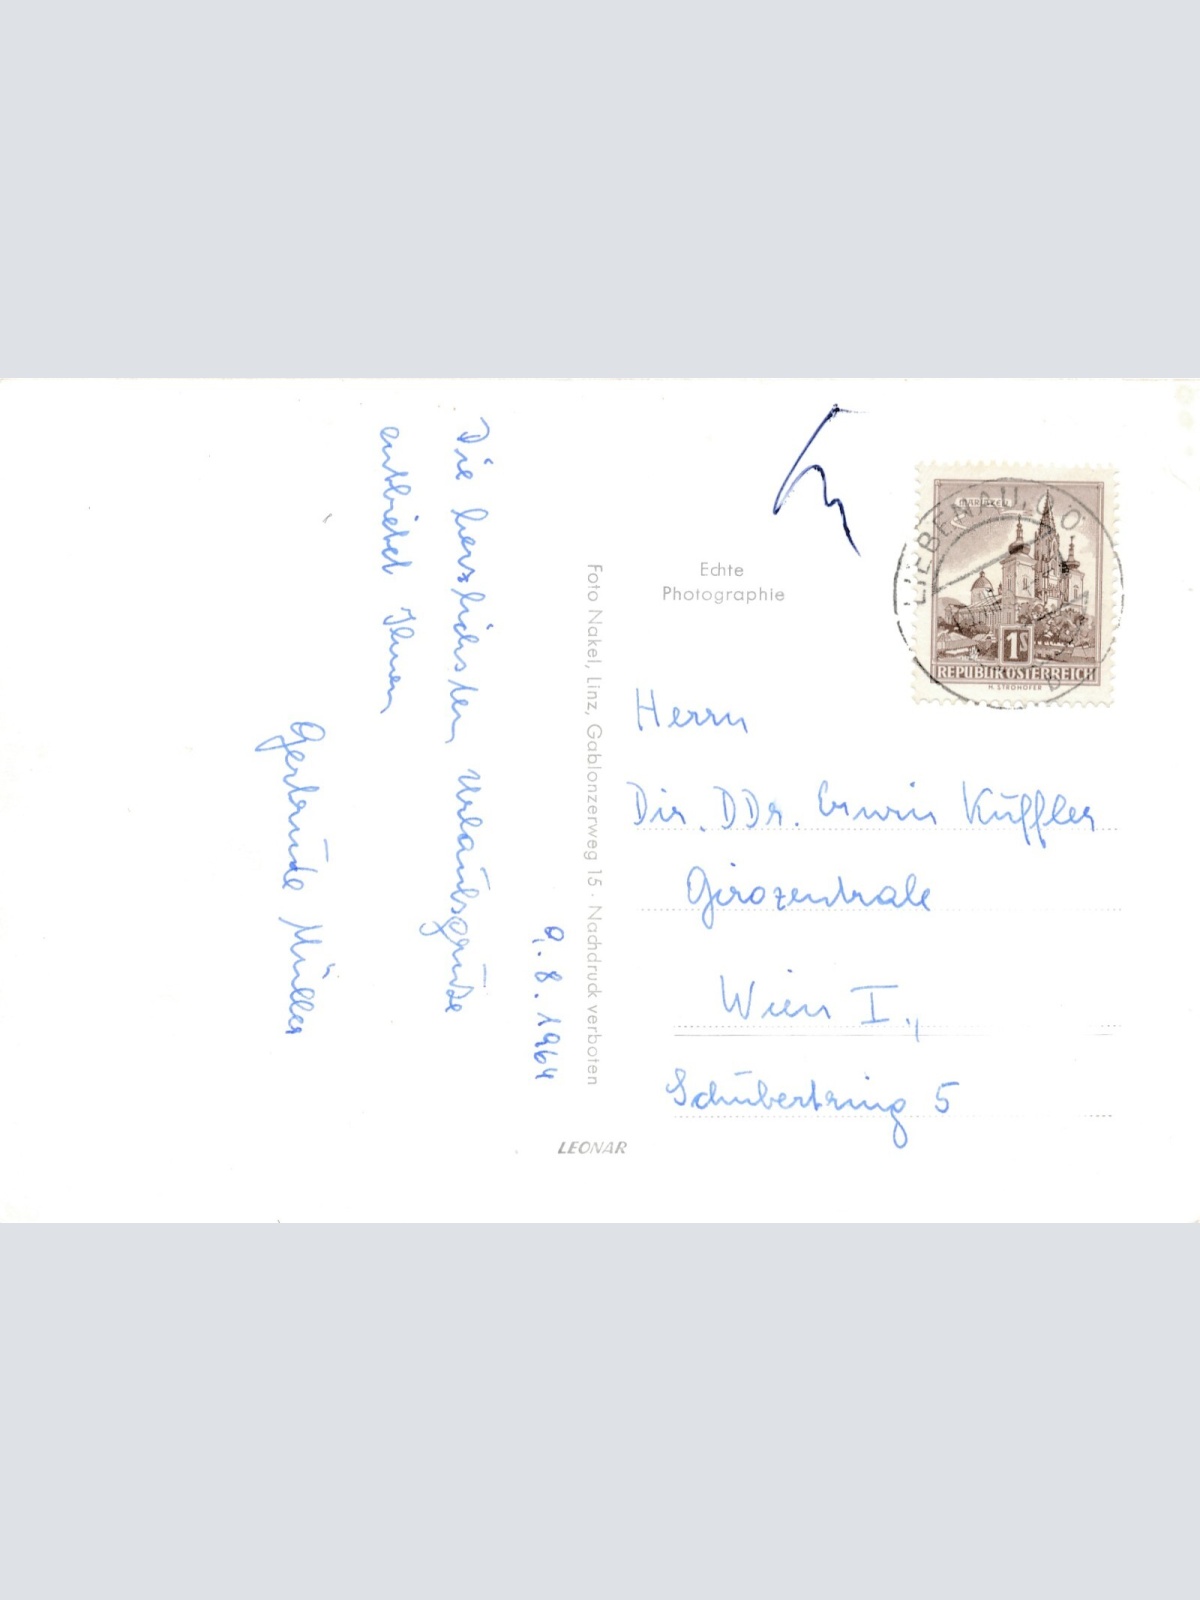 Die herzlichsten Urlaubsgrüße
entbietet Ihnen
Gertrude Müller
9.8.1964
Foto Nakel, Linz, Gablonzerweg 15 · Nachdruck verboten
LEONAR
Echte
Photographie
LIEBENAU, O.Ö.
MARIAZELL
1S
REPUBLIK OSTERREICH
H. STROHOFER
Herrn
Dir. DDr. Erwin Küffler
Girozentrale
Wien I.,
Schubertring 5